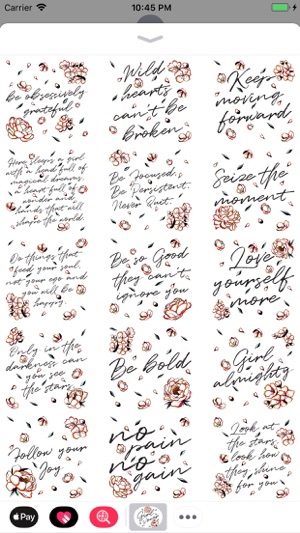 Carrier
10:45 PM
Be obsessively
grateful
Wild
hearts
can't be
broken
Keep
moving
forward
Here sleeps a girl
with a head full of
magical dreams,
a heart full of
wonder and
hands that will
shape the world.
Be Focused.
Be Persistent.
Never Quit.
Seize the
moment
Do things that
feed your soul,
not your ego and
you will be
happy.
Be so Good
they can't
ignore you
Love
yourself
more
Only in the
darkness can
you see
the stars
Be bold
Girl
almighty
Follow your
Joy
no
pain
no
gain
Look at
the stars
look how
they shine
for you
Pay